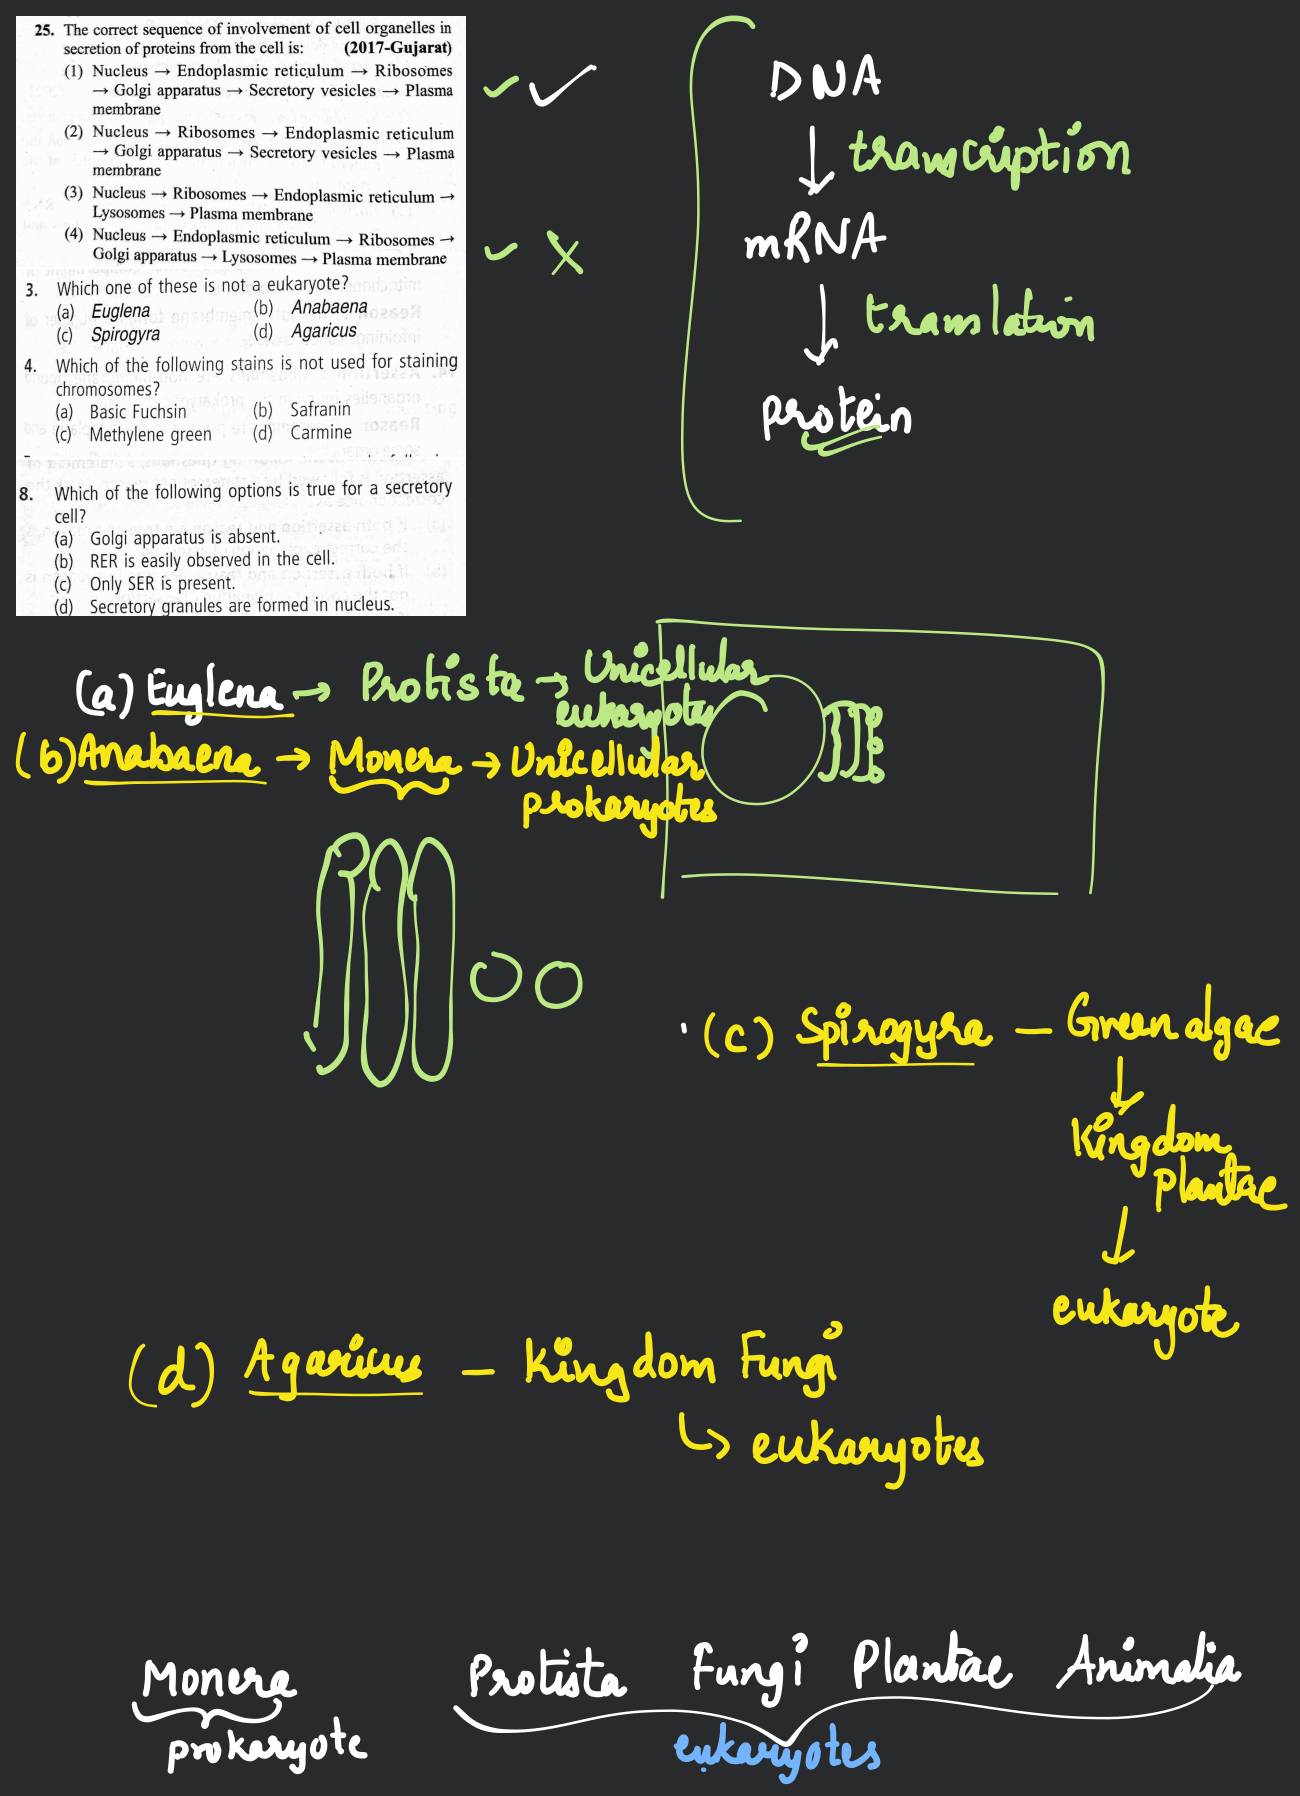 25. The correct sequence of involvement of cell organelles in
secretion of proteins from the cell is: (2017-Gujarat)
(1) Nucleus → Endoplasmic reticulum → Ribosomes
→ Golgi apparatus → Secretory vesicles → Plasma
membrane
(2) Nucleus → Ribosomes → Endoplasmic reticulum
→ Golgi apparatus → Secretory vesicles → Plasma
membrane
(3) Nucleus → Ribosomes → Endoplasmic reticulum →
Lysosomes → Plasma membrane
(4) Nucleus → Endoplasmic reticulum → Ribosomes →
Golgi apparatus → Lysosomes → Plasma membrane
3. Which one of these is not a eukaryote?
(a) Euglena (b) Anabaena
(c) Spirogyra (d) Agaricus
4. Which of the following stains is not used for staining
chromosomes?
(a) Basic Fuchsin (b) Safranin
(c) Methylene green (d) Carmine
8. Which of the following options is true for a secretory
cell?
(a) Golgi apparatus is absent.
(b) RER is easily observed in the cell.
(c) Only SER is present.
(d) Secretory granules are formed in nucleus.
DNA
↓ transcription
mRNA
↓ translation
protein
(a) Euglena → Protista → Unicellular
eukaryotes
(b) Anabaena → Monera → Unicellular
prokaryotes
(c) Spirogyra — Green algae
↓
Kingdom
Plantae
↓
eukaryote
(d) Agaricus — Kingdom Fungi
↳ eukaryotes
Monera Protista Fungi Plantae Animalia
prokaryote eukaryotes